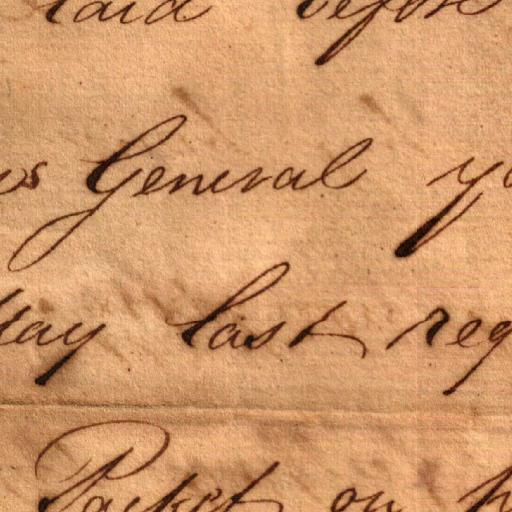 laid before
General yo
May last req
Packet on